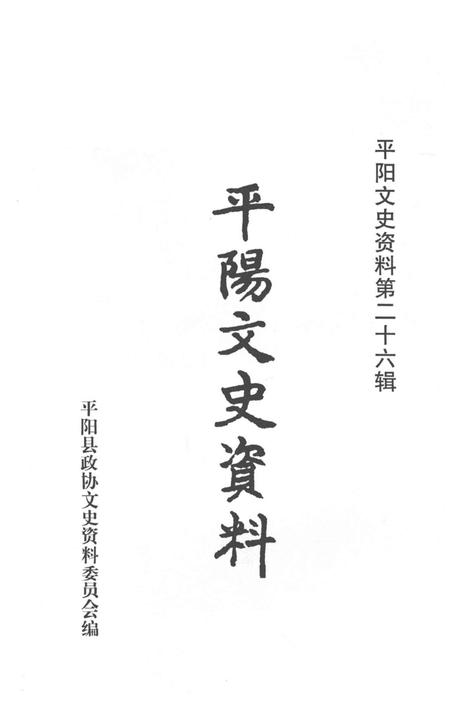 平阳文史资料第二十六辑
平陽文史資料
平阳县政协文史资料委员会编